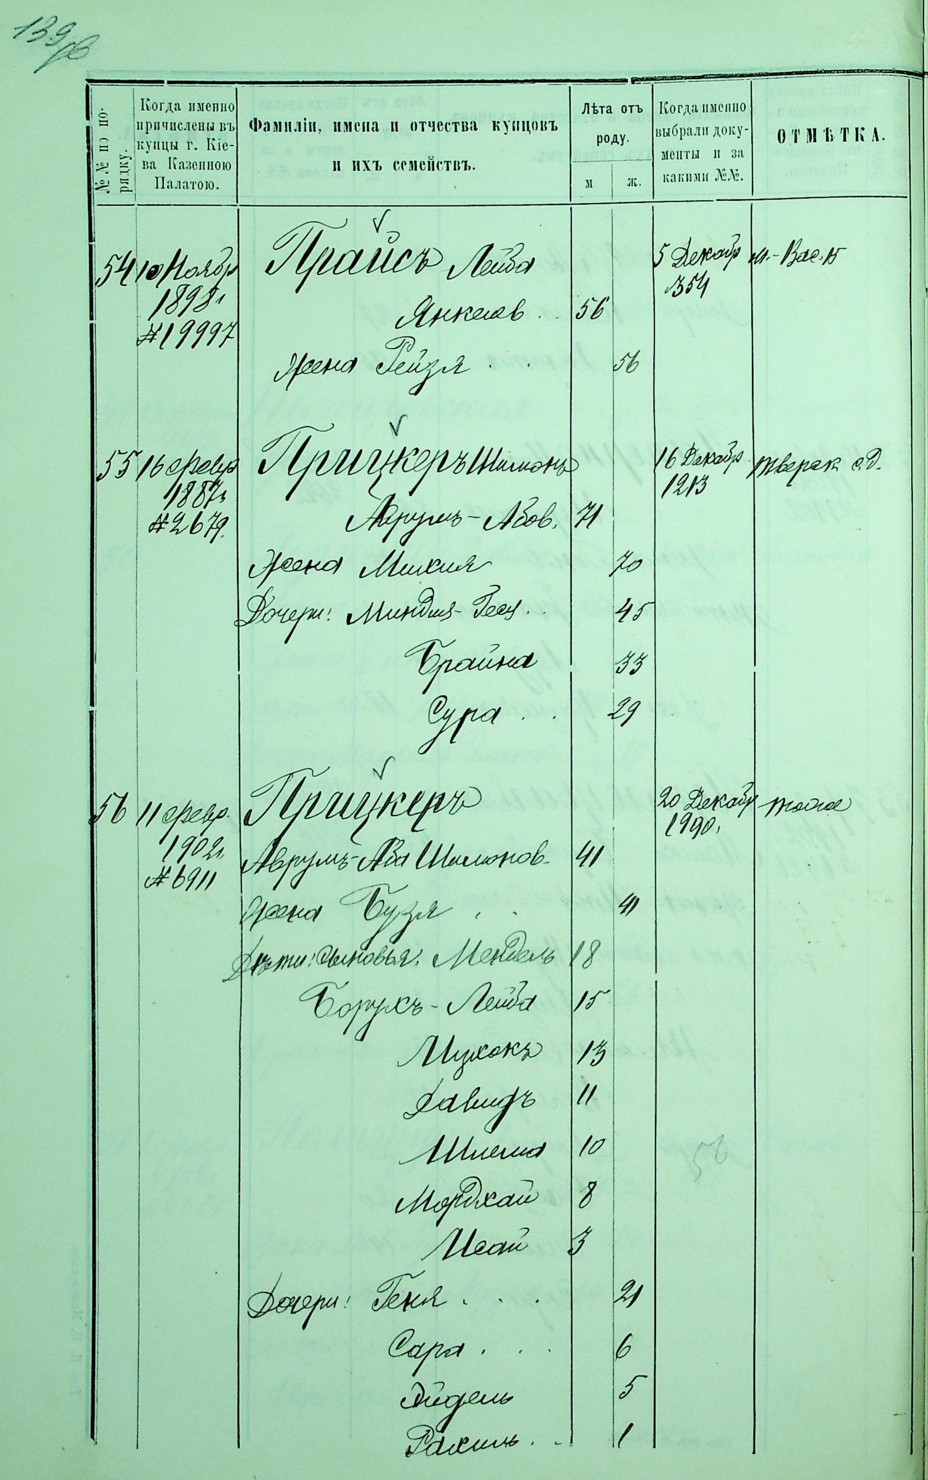 139 об
№№ по по-
рядку.
Когда именно
причислены въ
купцы г. Кіе-
ва Казенною
Палатою.
Фамиліи, имена и отчества купцовъ
и ихъ семействъ.
Лѣта отъ
роду.
м
ж.
Когда именно
выбрали доку-
менты и за
какими №№.
ОТМѢТКА.
54 10 Ноябр Прайсъ Лейба 5 Декабр м.-Вас.
1898г 354
№19997 Янкелев . . 56
Жена Рейзя . . 56
55 16 февр Прицкеръ Шимонъ 16 Декабр
1887г 1213
№2679. Аврумъ-Абов. 71
Жена Михля 70
Дочери: Миндля- . 45
Брайна 33
Сура . . 29
56 11 февр. Прицкеръ 20 Декабр тоже
1902г. 1990.
№6911 Аврумъ-Аба Шимонов. 41
Жена Бузя . . 41
Дѣти: Сыновья: Мендель 18
Борухъ-Лейба 15
Ицхокъ 13
Давидъ 11
Шлема 10
Мордхай 8
Исай 3
Дочери: Геня . . . 21
Сара . . . 6
56
Эйдель 5
Рахиль . . 1